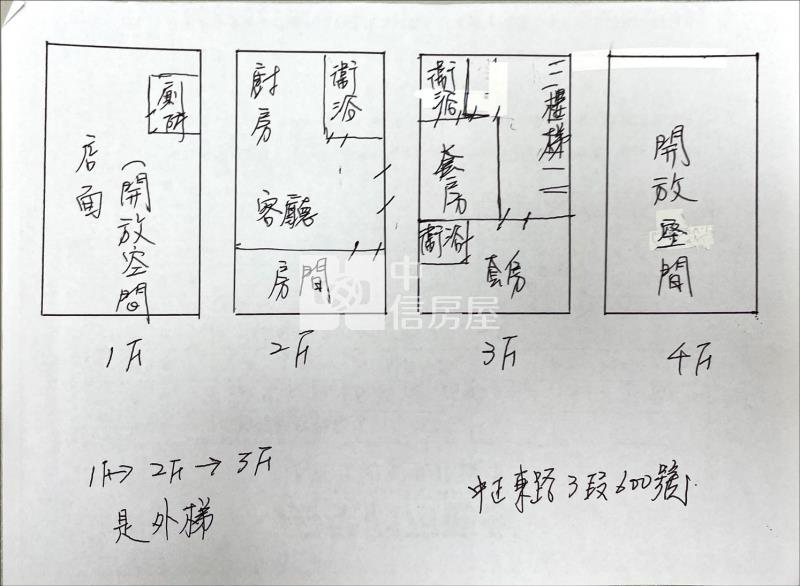 廁所
店面
(開放空間
1F
廚房
衛浴
客廳
房間
2F
衛浴
套房
樓梯
衛浴
套房
3F
開放空間
4F
中信房屋
1F→ 2F → 3F
是外梯
中正東路3段600號